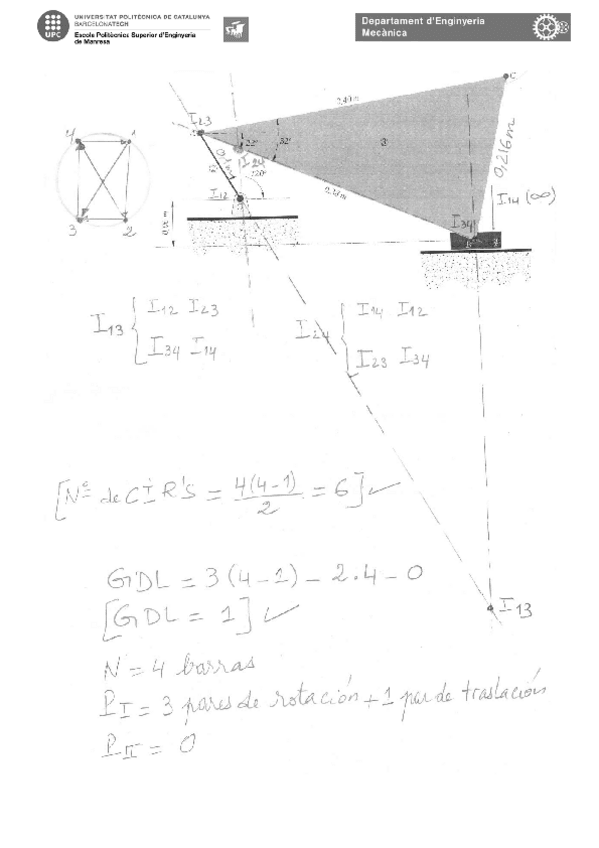 UNIVERSITAT POLITÈCNICA DE CATALUNYA
BARCELONATECH
Escola Politècnica Superior d'Enginyeria
de Manresa
UPC
Departament d'Enginyeria
Mecànica
C
I23
22°
32°
I24
120°
I12
0,216m
I14 (∞)
I34
4 1
3 2
I13 { I12 I23
I34 I14
I24 { I14 I12
I23 I34
[Nº de CIR'S = 4(4-1)/2 = 6] ✓
GDL = 3(4-1) - 2·4 - 0
[GDL = 1] ✓
I13
N = 4 barras
PI = 3 pares de rotación + 1 par de traslación
PII = 0